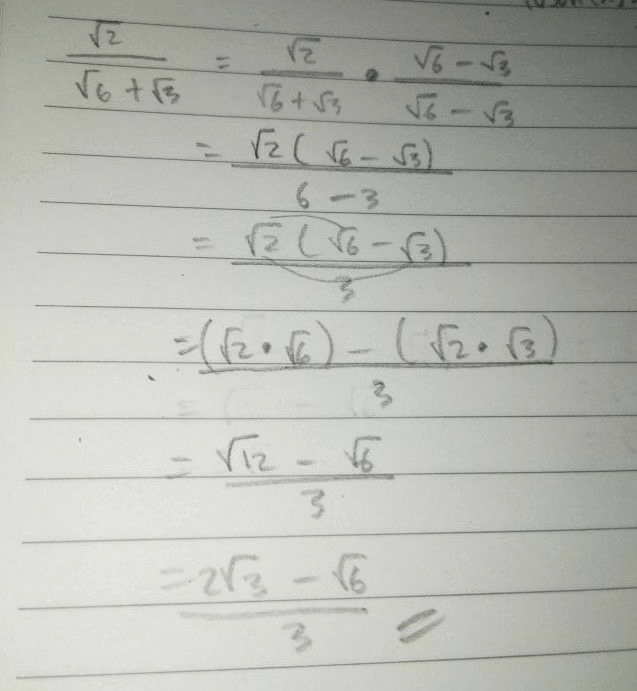 √2/(√6 + √3) = √2/(√6 + √3) • (√6 − √3)/(√6 − √3)
= √2(√6 − √3)/(6 − 3)
= √2(√6 − √3)/3
= ((√2 • √6) − (√2 • √3))/3
= (√12 − √6)/3
= (2√3 − √6)/3 //